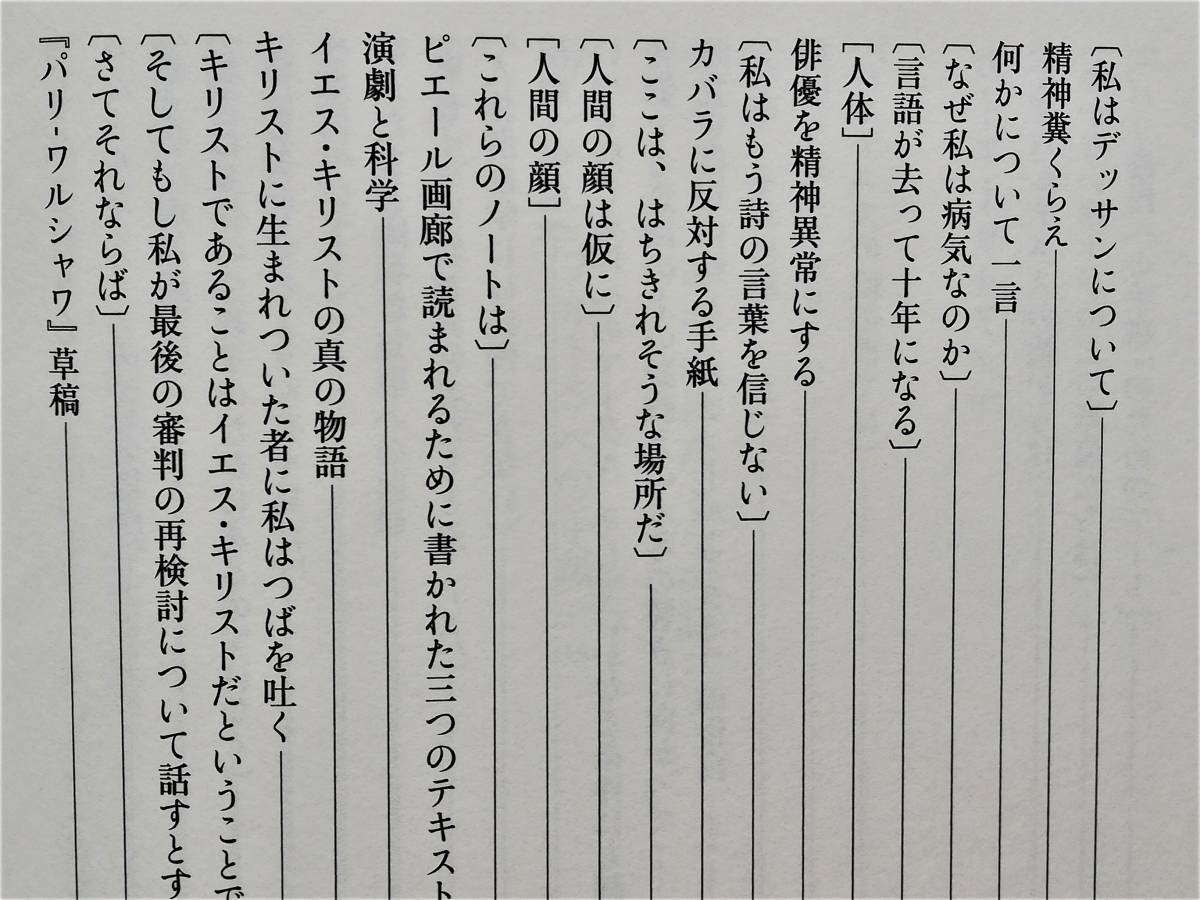 〔私はデッサンについて〕
精神糞くらえ
何かについて一言
〔なぜ私は病気なのか〕
〔言語が去って十年になる〕
〔人体〕
俳優を精神異常にする
〔私はもう詩の言葉を信じない〕
カバラに反対する手紙
〔ここは、はちきれそうな場所だ〕
〔人間の顔は仮に〕
〔人間の顔〕
〔これらのノートは〕
ピエール画廊で読まれるために書かれた三つのテキスト
演劇と科学
イエス・キリストの真の物語
キリストに生まれついた者に私はつばを吐く
〔キリストであることはイエス・キリストだということで
〔そしてもし私が最後の審判の再検討について話すとす
〔さてそれならば〕
『パリ-ワルシャワ』草稿